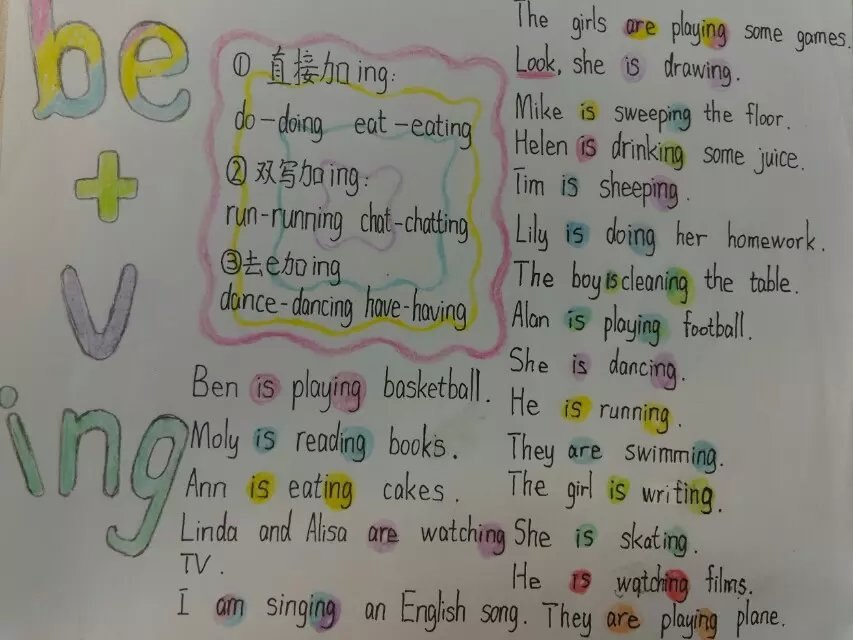 be
+
v
ing
① 直接加ing:
do-doing eat-eating
② 双写加ing:
run-running chat-chatting
③去e加ing
dance-dancing have-having
The girls are playing some games.
Look, she is drawing.
Mike is sweeping the floor.
Helen is drinking some juice.
Tim is sheeping.
Lily is doing her homework.
The boy is cleaning the table.
Alan is playing football.
She is dancing.
He is running.
They are swimming.
The girl is writing.
She is skating.
He is watching films.
They are playing plane.
Ben is playing basketball.
Moly is reading books.
Ann is eating cakes.
Linda and Alisa are watching
TV.
I am singing an English song.